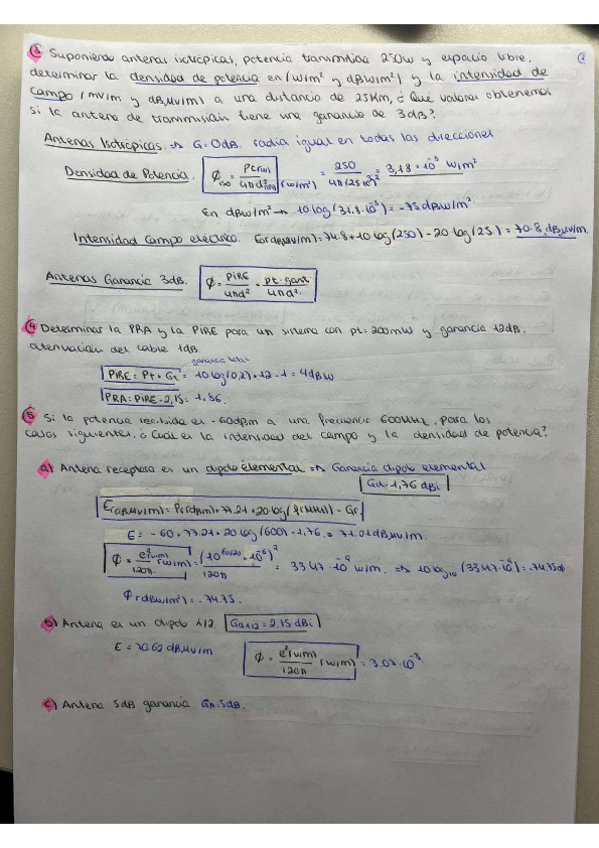 3 Suponiendo antenas isotrópicas, potencia transmitida 250w y espacio libre,
determinar la densidad de potencia en (w/m² y dBw/m²) y la intensidad de
campo (mv/m y dBμv/m) a una distancia de 25Km, ¿Qué valores obtenemos
si la antena de transmisión tiene una ganancia de 3dB?
Antenas Isotrópicas ⇒ G=0dB. radia igual en todas las direcciones
Densidad de Potencia. Φiso = Pt(w) / 4πd² (w/m²) = 250 / 4π(25·10³)² = 3,18·10⁻⁸ w/m²
En dBw/m² → 10log(31,8·10⁻⁹) = -75dBw/m²
Intensidad Campo eléctrico. E0(dBμv/m) = 74.8+10log(250)-20log(25) = 70.8 dBμv/m.
Antenas Ganancia 3dB. Φ = PIRE / 4πd² = pt·gant / 4πd².
4 Determinar la PRA y la PIRE para un sistema con pt=200mW y ganancia 12dB.
atenuación del cable 1dB.
ganancia total
PIRE = Pt + Gt = 10log(0,2)+12-1 = 4dBW
PRA = PIRE-2,15 = 1.86.
5 Si la potencia recibida es -60dBm a una frecuencia 600MHz, para los
casos siguientes, ¿Cuál es la intensidad del campo y la densidad de potencia?
a) Antena receptora es un dipolo elemental ⇒ Ganancia dipolo elemental
Gd=1,76 dBi
E(dBμv/m) = Pr(dBm)+77.21+20log(f(MHz))-Gr
E = -60+77.21+20log(600)-1,76 = 71.01dBμv/m.
Φ = e²(v/m) / 120π (w/m) = (10^60/20 · 10⁻⁶)² / 120π = 33'47·10⁻⁹ w/m. ⇒ 10log₁₀(33'47·10⁻⁹) = -74.75d
Φ(dBw/m²) = -74.75.
b) Antena es un dipolo λ/2 Gdλ/2 = 2.15 dBi
E = 70.62 dBμv/m Φ = e²(v/m) / 120π (w/m) = 3,07·10⁻³
c) Antena 5dB ganancia GA=5dB.